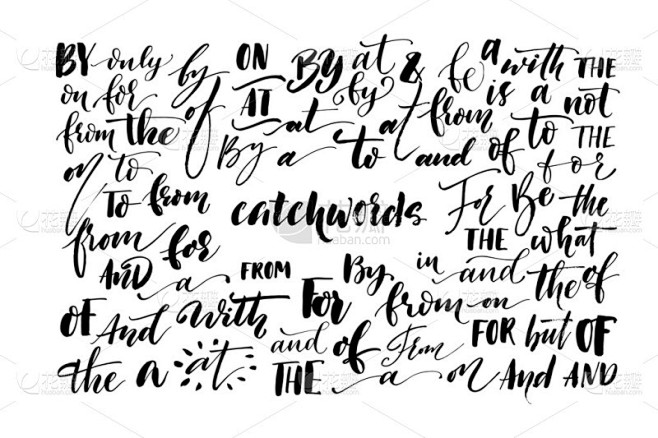 BY only by ON By at & be a with THE
on for of AT by from is a not
from the at at to THE
on to By a to and of for
To from catchwords For Be the
from for THE what
AND a FROM By in and the of
OF And with For from on
and of From FOR but OF
the a at THE a on And AND
huaban.com